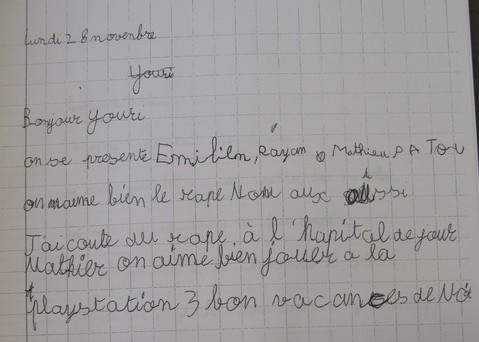 lundi 28 novenbre
Youri
Bonjour Youri
on se presente Emilien, Rayan Mathieu
on maime bien le rape Nom aux aussi
J'ai coute du rape, à l'hapital de jour
Mathier on aime bien jouer a la
playstation 3 bon vacances de No